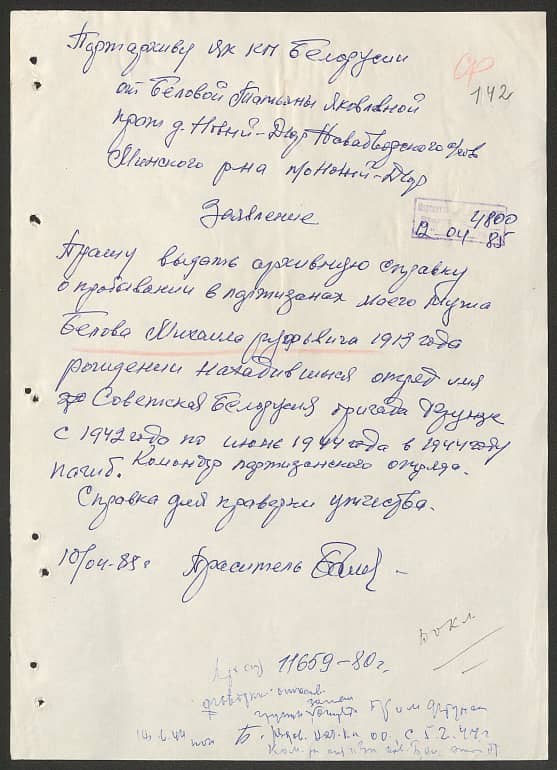 Партархиву цк КП Белорусии
от Беловой Татьяны Яковлевной
прож д. Новый-Двор Новодворского с/сов
Минского р-на п/о Новый-Двор
Заявление
СР
142
4800
12 04 85
Прашу выдать архивную справку
о прибывании в партизанах моего мужа
Белова Михаила Руфьвича 1913 года
рождении находившися отряд имя
Советская Белорусия бригада Фрунзе
с 1942 годо по июнь 1944 года в 1944 году
погиб. Командир партизанского отряда.
Справка для праверки учисства.
10/04-85 г Праситель
11659-80 г.
14.6.44 Б. с 5.2.44 г